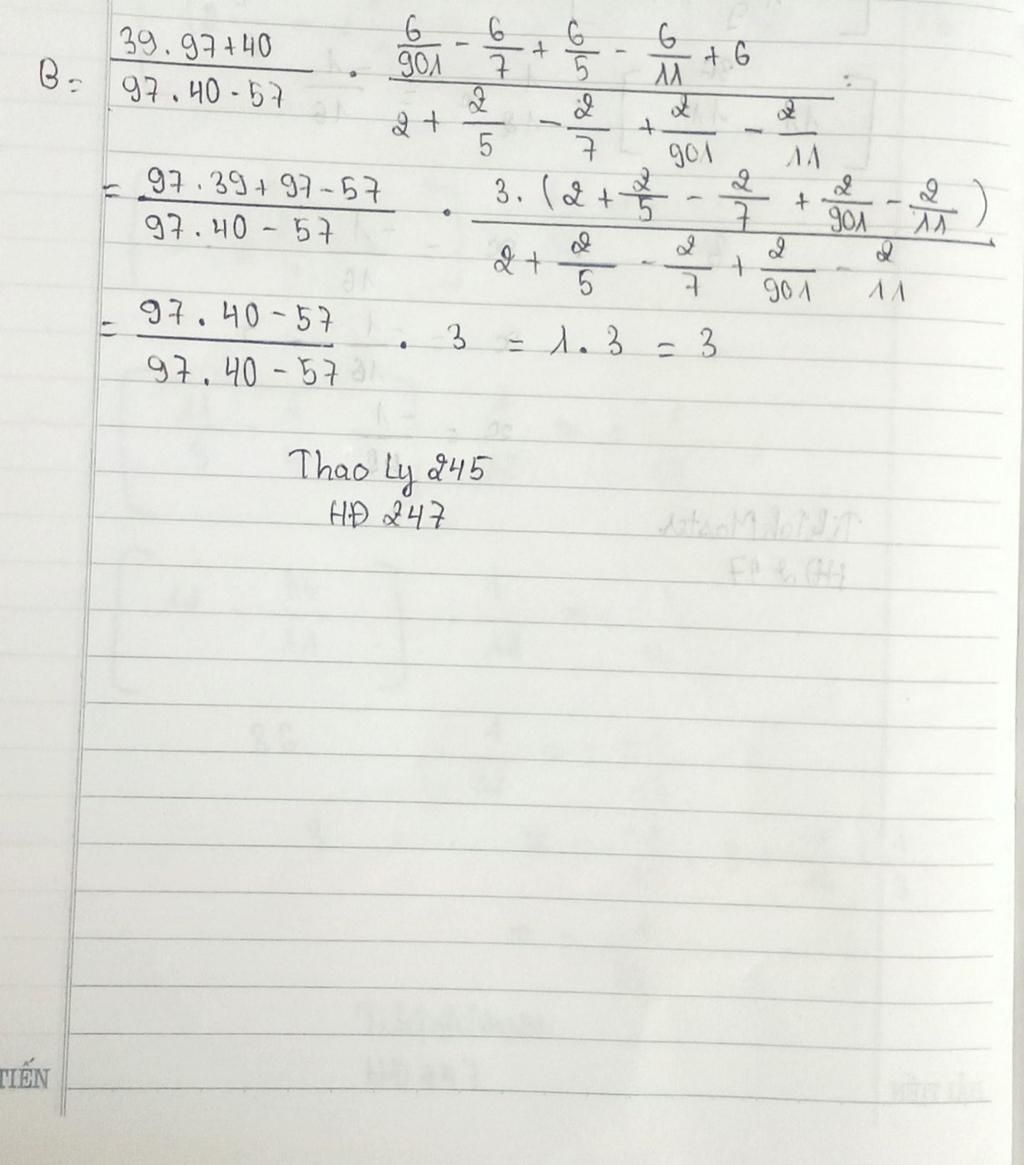 B = (39 . 97 + 40)/(97 . 40 - 57) . (6/901 - 6/7 + 6/5 - 6/11 + 6)/(2 + 2/5 - 2/7 + 2/901 - 2/11) :
= (97 . 39 + 97 - 57)/(97 . 40 - 57) . (3. (2 + 2/5 - 2/7 + 2/901 - 2/11))/(2 + 2/5 - 2/7 + 2/901 - 2/11)
= (97 . 40 - 57)/(97 . 40 - 57) . 3 = 1 . 3 = 3
Thao Ly 245
HĐ 247
TIẾN